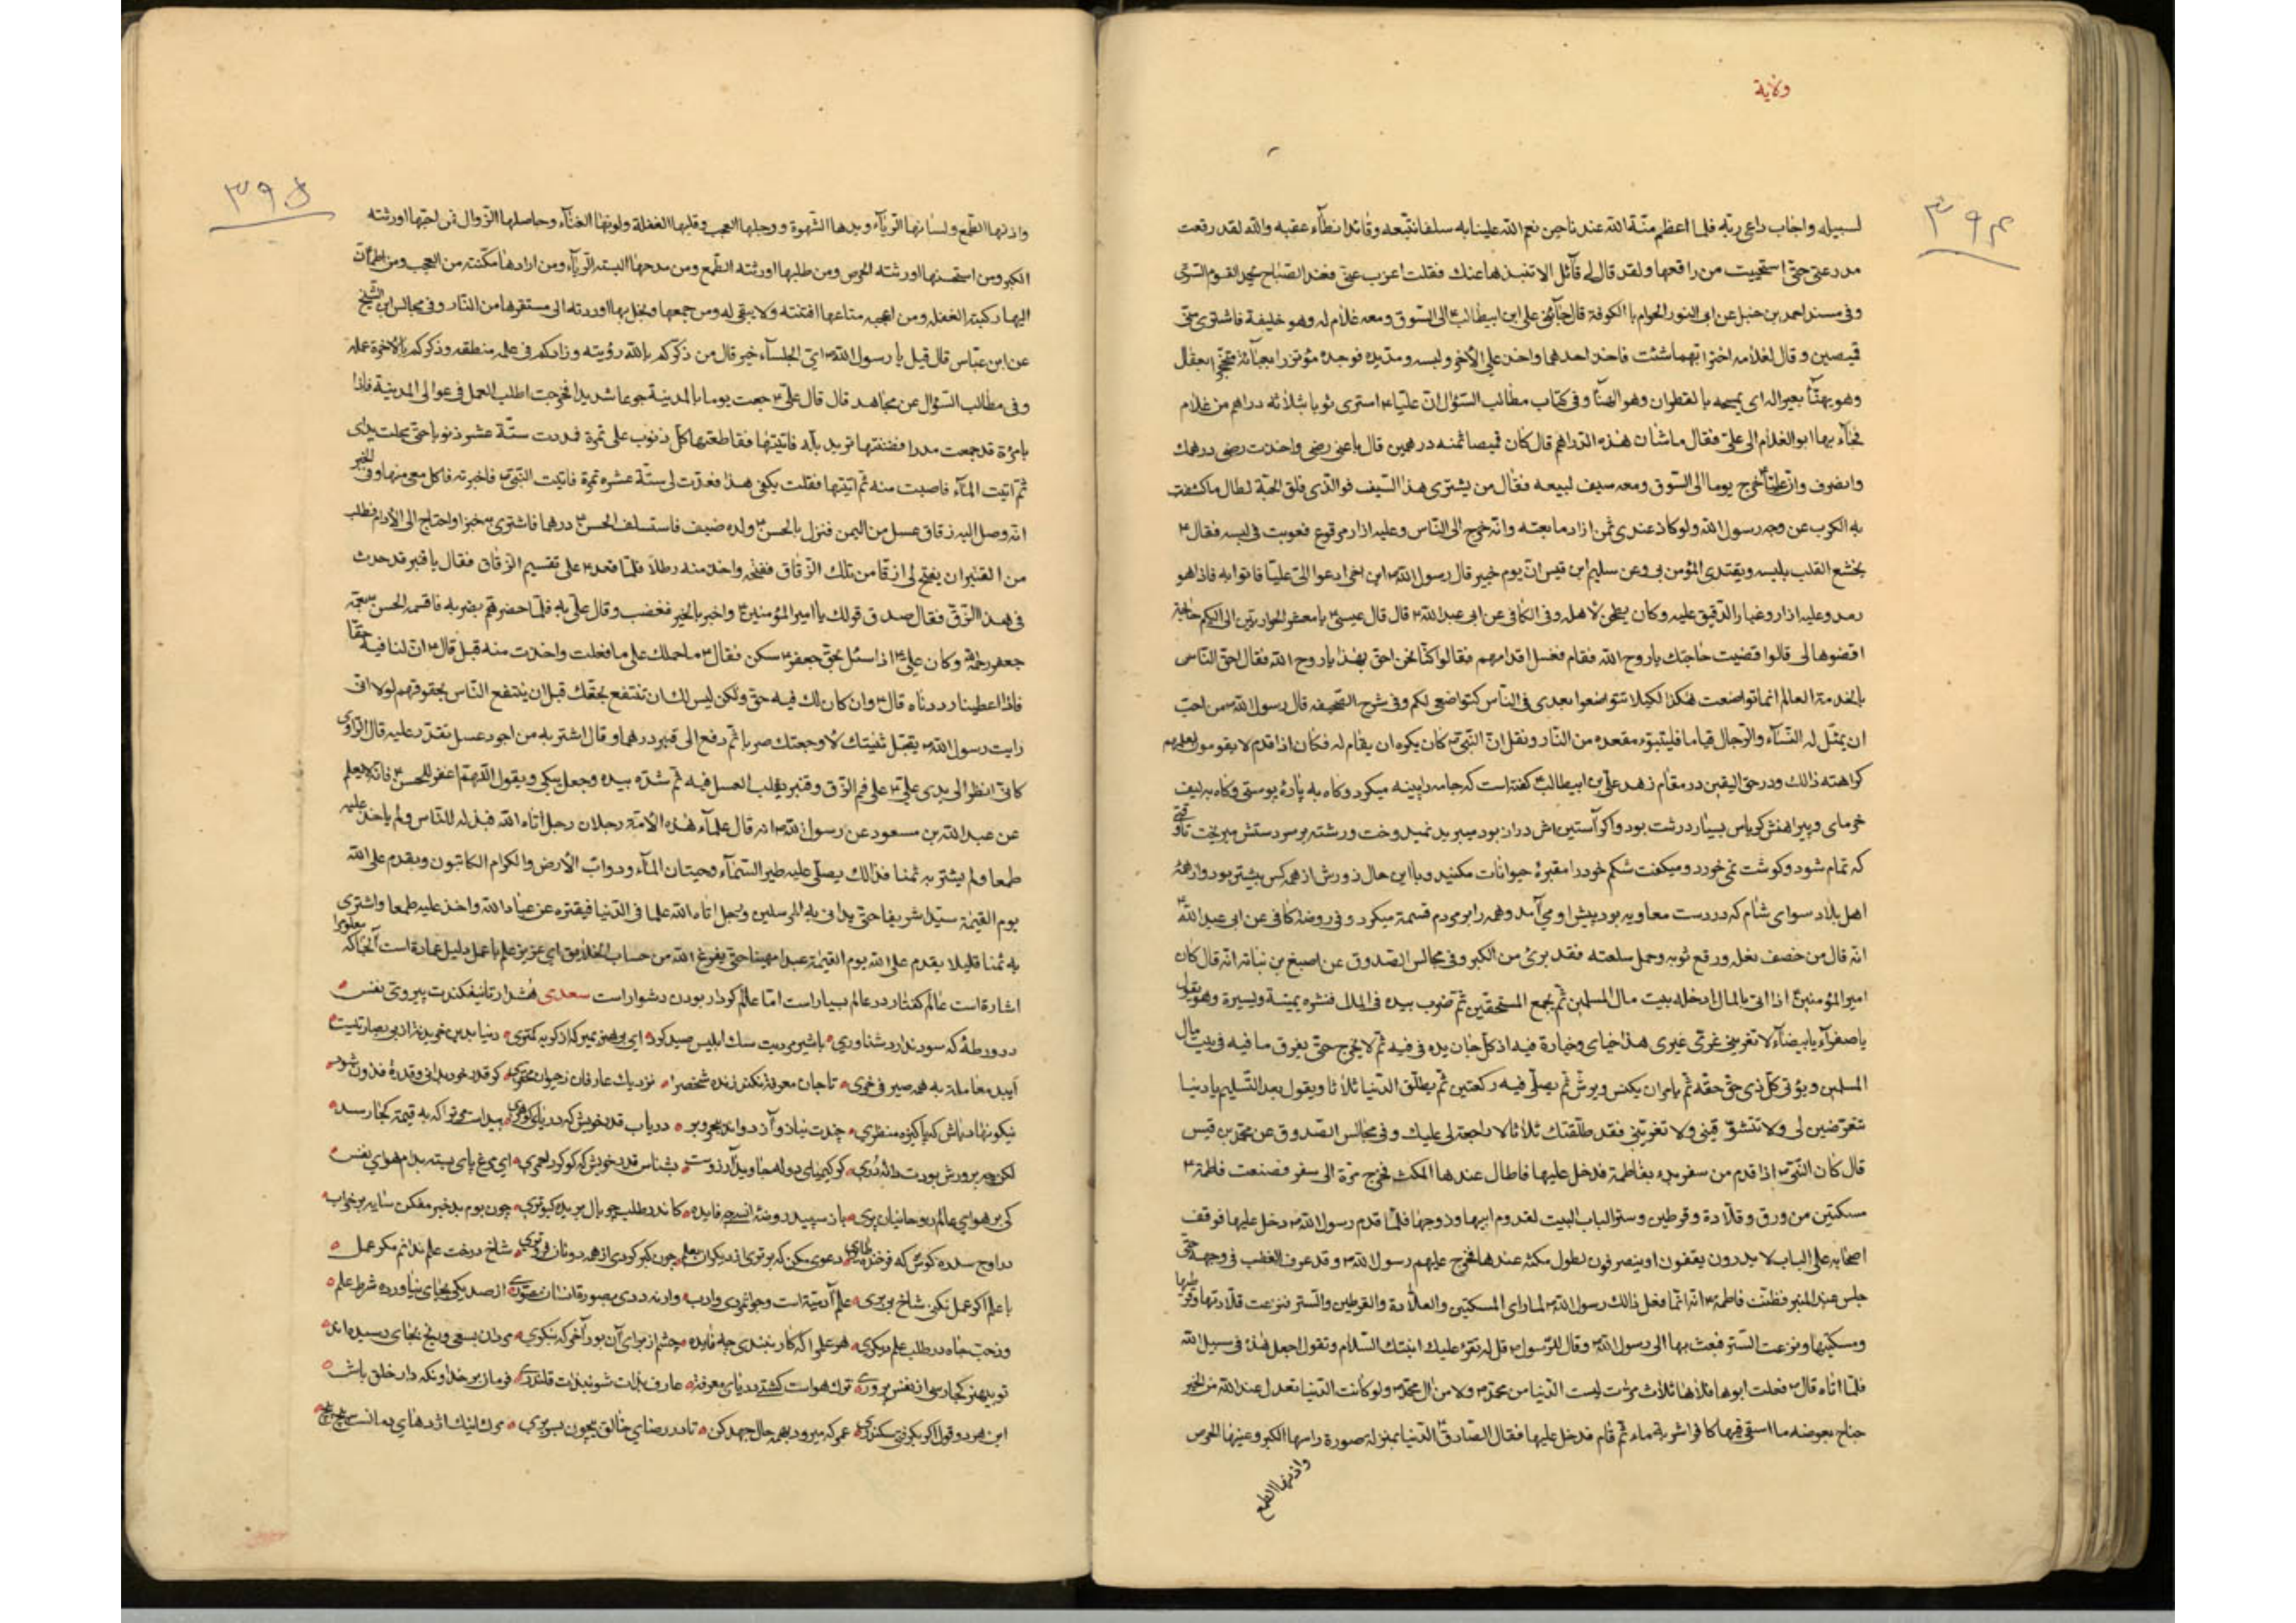 ولایة
۳۹۴
لسبیله واجاب داعی ربّه فلما اعظم منّة الله عندنا حین نعم الله علینا به سلفا نتّبعه وقائدا نطأ عقبه والله لقد رقعت
مدرعتی حتّی استحییت من راقعها ولقد قال لی قآئل الا تنبذها عنک فقلت اعزب عنّی فعند الصّباح یحمد القوم السّری
وفی مسند احمد بن حنبل عن ابی النور الحوام بالکوفة قال جآئنی علی ابن ابیطالب الی السّوق ومعه غلام له وهو خلیفة فاشتری منّی
قمیصین وقال لغلامه اختر ایّهما شئت فاخذ احدهما واخذ علی الآخر ولبسه ومدّ یده فوجده
وهو یهنّأ بعیرا له ای یمسحه بالقطران وهو الهنآ وفی کتاب مطالب السّؤال انّ علیّا اشتری ثوبا بثلاثه دراهم من غلام
فجآء بها ابو الغلام الی علیّ فقال ما شان هذه الدّراهم قال کان قمیصا ثمنه درهمین قال باعنی رضی واخذت رضی درهمک
وانصرف وانّ علیّا خرج یوما الی السّوق ومعه سیف لبیعه فقال من یشتری هذا السّیف فوالّذی فلق الحبّة لطال ما کشفت
به الکرب عن وجه رسول الله ولو کان عندی ثمن ازار ما بعته وانّه خرج الی النّاس وعلیه ازار مرقوع فعوتب فی لبسه فقال
یخشع القلب بلبسه ویقتدی المؤمن بی وعن سلیم ابن قیس انّ یوم خیبر قال رسول الله این اخی ادعوا الیّ علیّا فاتوا به فاذا هو
رمد وعلیه ازار وغبار الدّقیق علیه وکان یطحن لاهله وفی الکافی عن ابی عبدالله قال قال عیسی یا معشر الحواریّین لی الیکم حاجة
اقضوها لی قالوا قضیت حاجتک یا روح الله فقام فغسل اقدامهم فقالوا کنّا نحن احق بهذا یا روح الله فقال احقّ النّاس
بالخدمة العالم انما تواضعت هکذا لکیلا تتواضعوا بعدی فی النّاس کتواضعی لکم وفی شرح الصّحیفه قال رسول الله من احبّ
ان یمثّل له النّسآء والرّجال قیاما فلیتبوّء مقعده من النّار ونقل انّ النّبی کان یکره ان یقام له فکان اذا قدم لا یقومون لعلمهم
کراهته ذالک ودر حق الیقین در مقام زهد علی بن ابیطالب گفته است که جامه را پینه میکرد وگاه به پارهٔ پوستی وگاه به لیف
خرمای وپیراهنش کرباس بسیار درشت بود واگر آستین اش دراز بود میبرید نمیدوخت ورشته بر سر دستش میریخت تا وقتی
که تمام شود وگوشت نمی خورد ومیگفت شکم خود را مقبرهٔ حیوانات مکنید وبا این حال زورش از همه کس بیشتر بود واز همهٔ
اهل بلاد سوای شام که در دست معاویه بود پیش او می آمد وهمه را بر مردم قسمة میکرد وفی روضة کافی عن ابی عبدالله
انّه قال من خصف نعله ورقع ثوبه وحمل سلعته فقد برئ من الکبر وفی مجالس الصّدوق عن اصبغ بن نباته انّه قال کان
امیرالمؤمنین اذا اتی بالمال ادخله بیت مال المسلمین ثم یجمع المستحقین ثم ضرب بیده فی المال فنثره یمینة ویسیرة وهو یقول
یا صفرآء یا بیضآء لا تغرّینی غرّی غیری هذا جنای وخیاره فیه اذ کلّ جان یده فی فیه ثم لا یخرج حتّی یفرق ما فیه فی بیت مال
المسلمین ویؤتی کلّ ذی حقّ حقه ثم یامر ان یکنس ویرش ثم یصلّی فیه رکعتین ثم یطلّق الدّنیا ثلاثا ویقول بعد التّسلیم یا دنیا
تتعرّضین لی ولا تتشوّقینی ولا تغرّینی فقد طلّقتک ثلاثا لا راجعة لی علیک وفی مجالس الصّدوق عن محمّد بن قیس
قال کان النّبی اذا قدم من سفر بدء بفاطمة فدخل علیها فاطال عندها المکث فخرج مرّة الی سفر فصنعت فاطمة
مسکتین من ورق وقلادة وقرطین وسترا لباب البیت لقدوم ابیها وزوجها فلمّا قدم رسول الله دخل علیها فوقف
اصحابه علی الباب لا یدرون یقفون او ینصرفون لطول مکثه عندها فخرج علیهم رسول الله وقد عرف الغضب فی وجهه حتّی
جلس عند المنبر فظنّت فاطمة انّه انّما فعل ذالک رسول الله لما رای المسکتین والقلادة والقرطین والسّتر فنزعت قلادتها وقرطیها
ومسکتیها ونزعت السّتر فبعث بها الی رسول الله وقال للرّسول قل له تقرء علیک ابنتک السّلام وتقول اجعل هذا فی سبیل الله
فلمّا اتاه قال فعلت ابوها فداها ثلاث مرّات لیست الدّنیا من محمّد ولا من آل محمّد ولو کانت الدّنیا تعدل عند الله من الخیر
جناح بعوضه ما اسقی فیها کافرا شربة ماء ثم قام فدخل علیها فقال الصّادق الدّنیا بمنزلة صورة راسها الکبر وعینها الحرص
واذنها الطمع
۳۹۵
واذنها الطّمع ولسانها الرّیآء ویدها الشّهوة ورجلها العجب وقلبها الغفلة ولونها الفنآء وحاصلها الزّوال فمن احبّها اورثته
الکبر ومن استحسنها اورثته الحرص ومن طلبها اورثته الطّمع ومن مدحها البسته الرّیآء ومن ارادها مکّنته من العجب ومن اطمأنّ
الیها رکبته الغفله ومن اعجبه متاعها افتنته ولا یبقی له ومن جمعها وبخل بها اوردته الی مستقرها من النّار وفی مجالس ابن الشّیخ
عن ابن عبّاس قال قیل یا رسول الله ایّ الجلسآء خیر قال من ذکرکم بالله رؤیته وزادکم فی علمه منطقه وذکرکم بالآخرة عمله
وفی مطالب السّؤال عن مجاهد قال قال علیّ جعت یوما بالمدینة جوعا شدیدا فخرجت اطلب العمل فی عوالی المدینة فاذا
بامرٔة قد جمعت مدرا فظننتها ترید بلّه فاتیتها فقاطعتها کلّ ذنوب علی تمرة فمددت ستّة عشر ذنوبا حتّی مجلت یدای
ثمّ اتیت المآء فاصبت منه ثم اتیتها فقلت بکفّی هذا فعدّت لی ستّة عشره تمرة فاتیت النّبی فاخبرته فاکل معی منها وفی الخبر
انّه وصل الیه زقاق عسل من الیمن فنزل بالحسن ولده ضیف فاستسلف الحسن درهما فاشتری خبزا واحتاج الی الادام فطلب
من القنبر ان یفتح له زقّا من تلک الزّقاق ففتحه واخذ منه رطلا فلمّا قعد علی تقسیم الزّقاق فقال یا قنبر قد حدث
فی هذا الزّقّ فقال صدق قولک یا امیرالمؤمنین واخبر بالخبر فغضب وقال علیّ به فلمّا حضر همّ بضربه فاقسمه الحسن بعمّه
جعفر وکان علیّ اذا سئل بحقّ جعفر سکن فقال ما حملک علی ما فعلت واخذت منه قبل قال انّ لنا فیه حقّا
فاذا اعطینا رددناه قال وان کان لک فیه حقّ ولکن لیس لک ان تنتفع بحقّک قبل ان ینتفع النّاس بحقوقهم لولا انّی
رایت رسول الله یقبّل ثنیّتک لاوجعتک ضربا ثم دفع الی قنبر درهما وقال اشتر به من اجود عسل تقدر علیه قال الرّاوی
کانّی انظر الی یدی علیّ علی فم الزّق وقنبر یقلب العسل فیه ثم شدّه بیده وجعل یبکی ویقول اللّهمّ اغفر للحسن فانّه لم یعلم
عن عبدالله بن مسعود عن رسول الله انه قال علمآء هذه الامّة رجلان رجل اتاه الله فبذله للنّاس ولم یاخذ علیه
طمعا ولم یشتر به ثمنا فذالک یصلّی علیه طیر السّمآء وحیتان المآء ودوابّ الارض والکرام الکاتبون ویقدم علی الله
یوم القیمة سیّدا شریفا حتّی یرافق المرسلین ورجل اتاه الله علما فی الدّنیا فیقتره عن عباد الله واخذ علیه طمعا واشتری
به ثمنا قلیلا یقدم علی الله یوم القیمة عبدا مهینا حتّی یفرغ الله من حساب الخلایق ای عزیز علم با عمل دلیل است
اشاره است عالم گفتار در عالم بسیار است امّا عالم کردار بودن دشوار است سعدی هشدار تا نیفکندت پیروی نفس
در ورطهٔ که سود ندارد شناوری با شیر مردیت سگ ابلیس صید کرد ای بی هنر بمیر که از گربه کمتری
نزدیک عارفان حیوان محقّری گر قدر خود بدانی وقدرت فزون شود
نیکو نهاد باش که پاکیزه منظری چندت نیاز وآز دواند ببحر وبر دریاب قدر خویش که دریای گوهری
گر کیمیای دولت جاویدت آرزوست بشناس قدر خویش که گوگرد احمری ای مرغ پای بسته بدام هوای نفس
کی بر هوای عالم روحانیان پری باز سپید روضهٔ انسی چه فایده کاندر طلب چو بال بریده کبوتری چون بوم بد خبر مفکن سایه بر خراب
در اوج سدره کوش که فرخنده طایری دعوی مکن که برترم از دیگران بعلم چون کبر کردی از همه دونان فروتری شاخ درخت علم ندانم مگر عمل
با علم اگر عمل نکنی شاخ بی بری علم آدمیّة است وجوانمردی وادب ورنه ددی بصورة انسان مصوّری از صد یکی بجای نیاورده شرط علم
وز حبّ جاه در طلب علم دیگری هر علم را که کار نبندی چه فایده چشم از برای آن بود آخر که بنگری مردان بسعی ورنج بجای رسیده اند
تو بی هنر کجا رسی از نفس پروری ترک هواست کشتی دریای معرفة عارف بذات شو نه بدلق قلندری فرمان بر خدا ونگه دار خلق باش
این هر دو قرن اگر بگرفتی سکندری عمری که میرود بهمه حال جهد کن تا در رضای خالق بیچون بسر بری